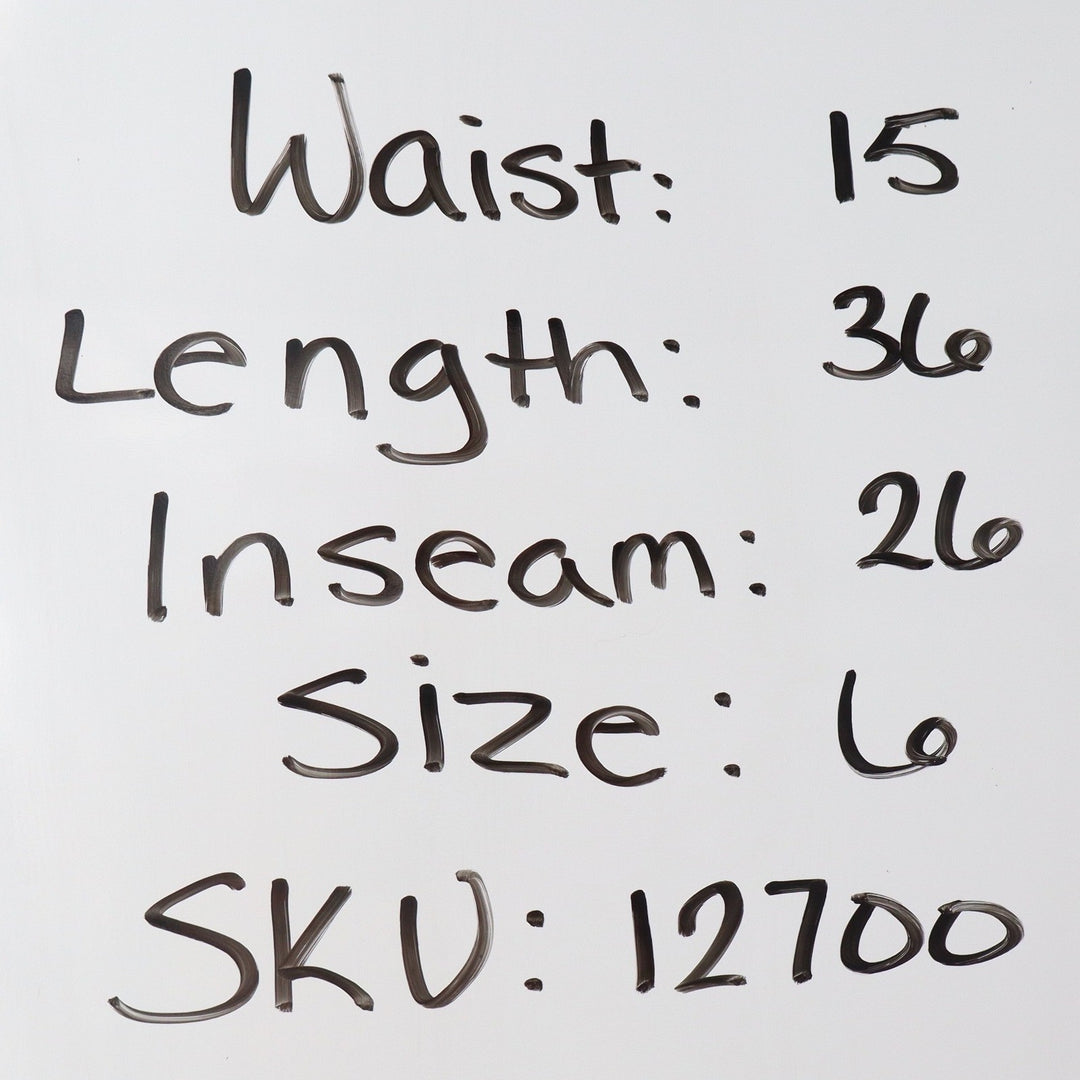 Waist: 15
Length: 36
Inseam: 26
Size: 6
SKU: 12700